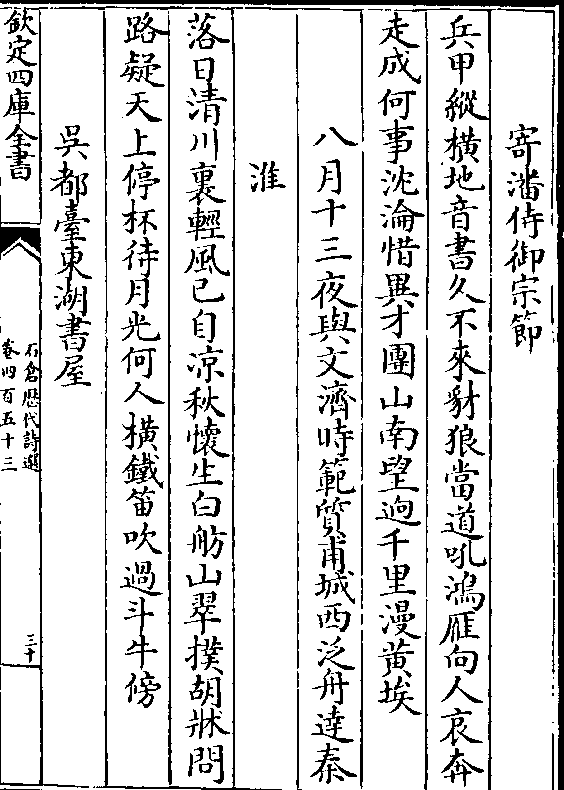 寄潘侍御宗節
兵甲縱橫地音書久不來豺狼當道吼鴻雁向人哀奔
走成何事沈淪惜異才團山南望逈千里漫黃埃
八月十三夜與文濟時範質甫城西泛舟達秦
淮
落日清川裏輕風已自凉秋懷生白舫山翠撲胡牀問
路疑天上停杯待月光何人橫鐵笛吹過斗牛傍
吳都臺東湖書屋
欽定四庫全書
石倉歷代詩選
卷四百五十三
三十